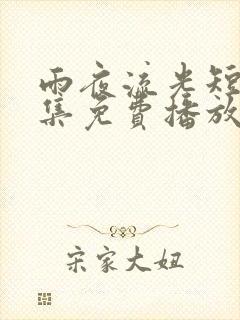 雨夜流光短
集免费播放
宋家大妞